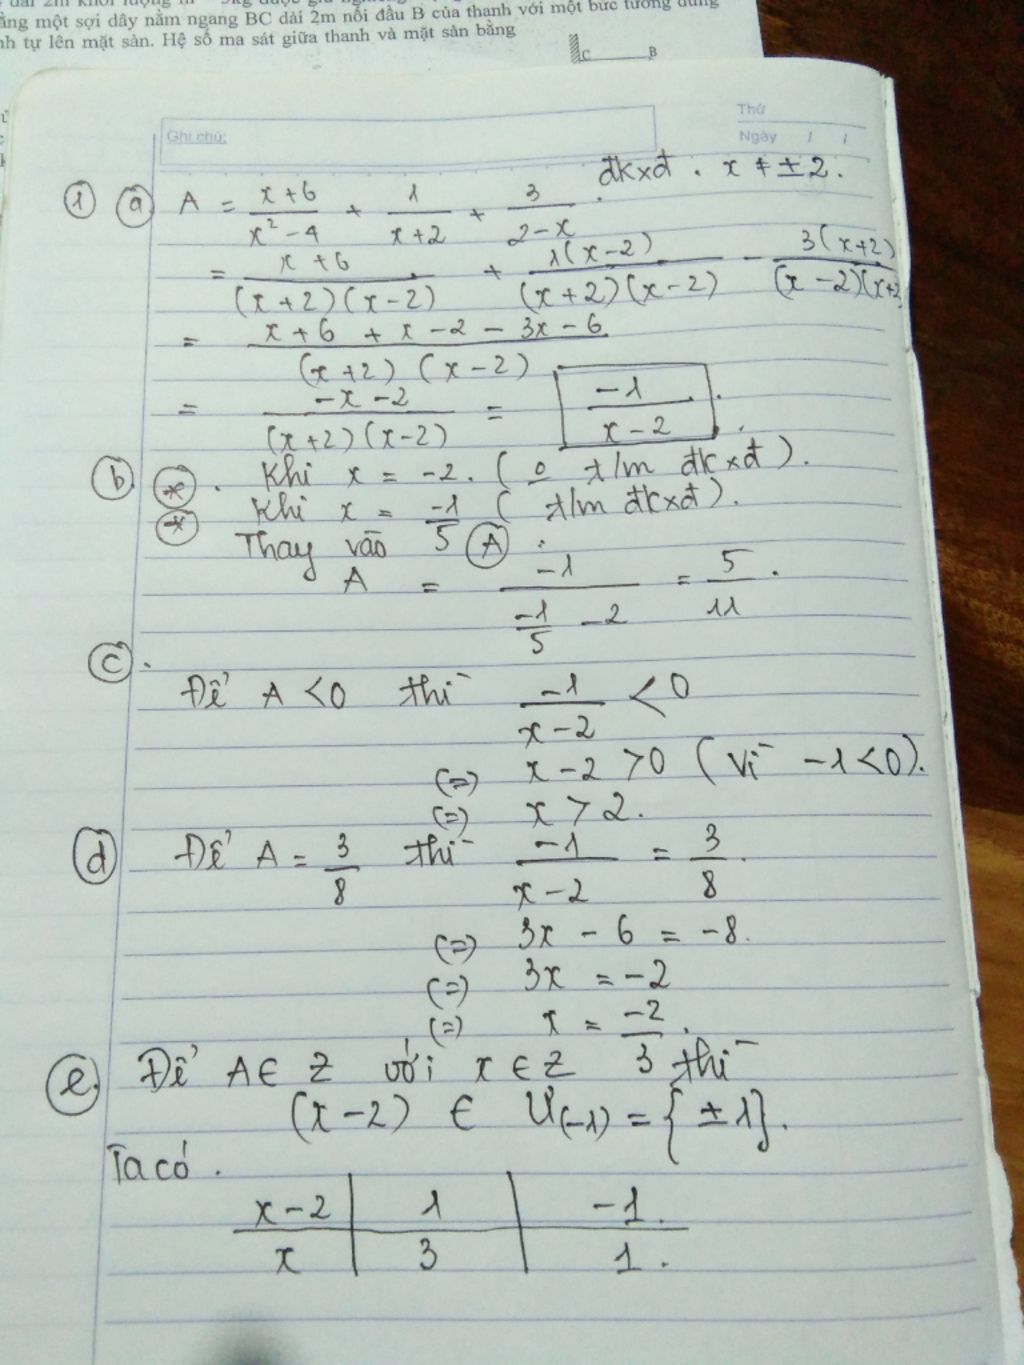 dài 2m khối lượng m
ằng một sợi dây nằm ngang BC dài 2m nối đầu B của thanh với một bức tường đứng
nh tự lên mặt sàn. Hệ số ma sát giữa thanh và mặt sàn bằng
C B
Ghi chú:
Thứ
Ngày / /
đkxđ . x ≠ ±2.
1 a A = \frac{x+6}{x^2-4} + \frac{1}{x+2} + \frac{3}{2-x} .
= \frac{x+6}{(x+2)(x-2)} + \frac{1(x-2)}{(x+2)(x-2)} - \frac{3(x+2)}{(x-2)(x+2)}
= \frac{x+6+x-2-3x-6}{(x+2)(x-2)}
= \frac{-x-2}{(x+2)(x-2)} = \frac{-1}{x-2} .
b * . Khi x = -2. ( o t/m đkxđ).
* Khi x = \frac{-1}{5} ( t/m đkxđ).
Thay vào A :
A = \frac{-1}{\frac{-1}{5} - 2} = \frac{5}{11} .
c .
Để A < 0 thì \frac{-1}{x-2} < 0
(=) x - 2 > 0 ( Vì -1 < 0).
(=) x > 2.
d Để A = \frac{3}{8} thì \frac{-1}{x-2} = \frac{3}{8} .
(=) 3x - 6 = -8.
(=) 3x = -2
(=) x = \frac{-2}{3} .
e. Để A ∈ Z với x ∈ Z thì
(x-2) ∈ Ư(-1) = { ±1}.
Ta có .
x-2 | 1 | -1.
x | 3 | 1.